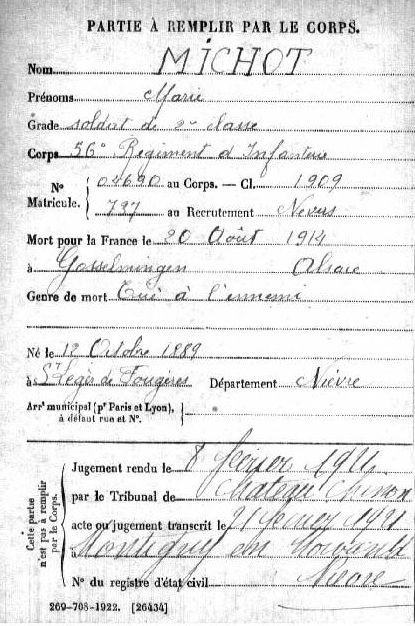 PARTIE À REMPLIR PAR LE CORPS.
Nom MICHOT
Prénoms Marie
Grade soldat de 2e classe
Corps 56e Régiment d'Infanterie
N° Matricule. { 04690 au Corps. — Cl. 1909
737 au Recrutement Nevers
Mort pour la France le 20 Août 1914
à Gosselmingen Alsace
Genre de mort Tué à l'ennemi
Né le 12 Octobre 1889
à St Léger de Fougères Département Nièvre
Arrt municipal (pr Paris et Lyon),
à défaut rue et N°.
Cette partie n'est pas à remplir par le Corps.
Jugement rendu le 8 février 1921
par le Tribunal de Chateau Chinon
acte ou jugement transcrit le 21 février 1921
à Montigny en Morvand
Nièvre
N° du registre d'état civil
269-708-1922. [26434]